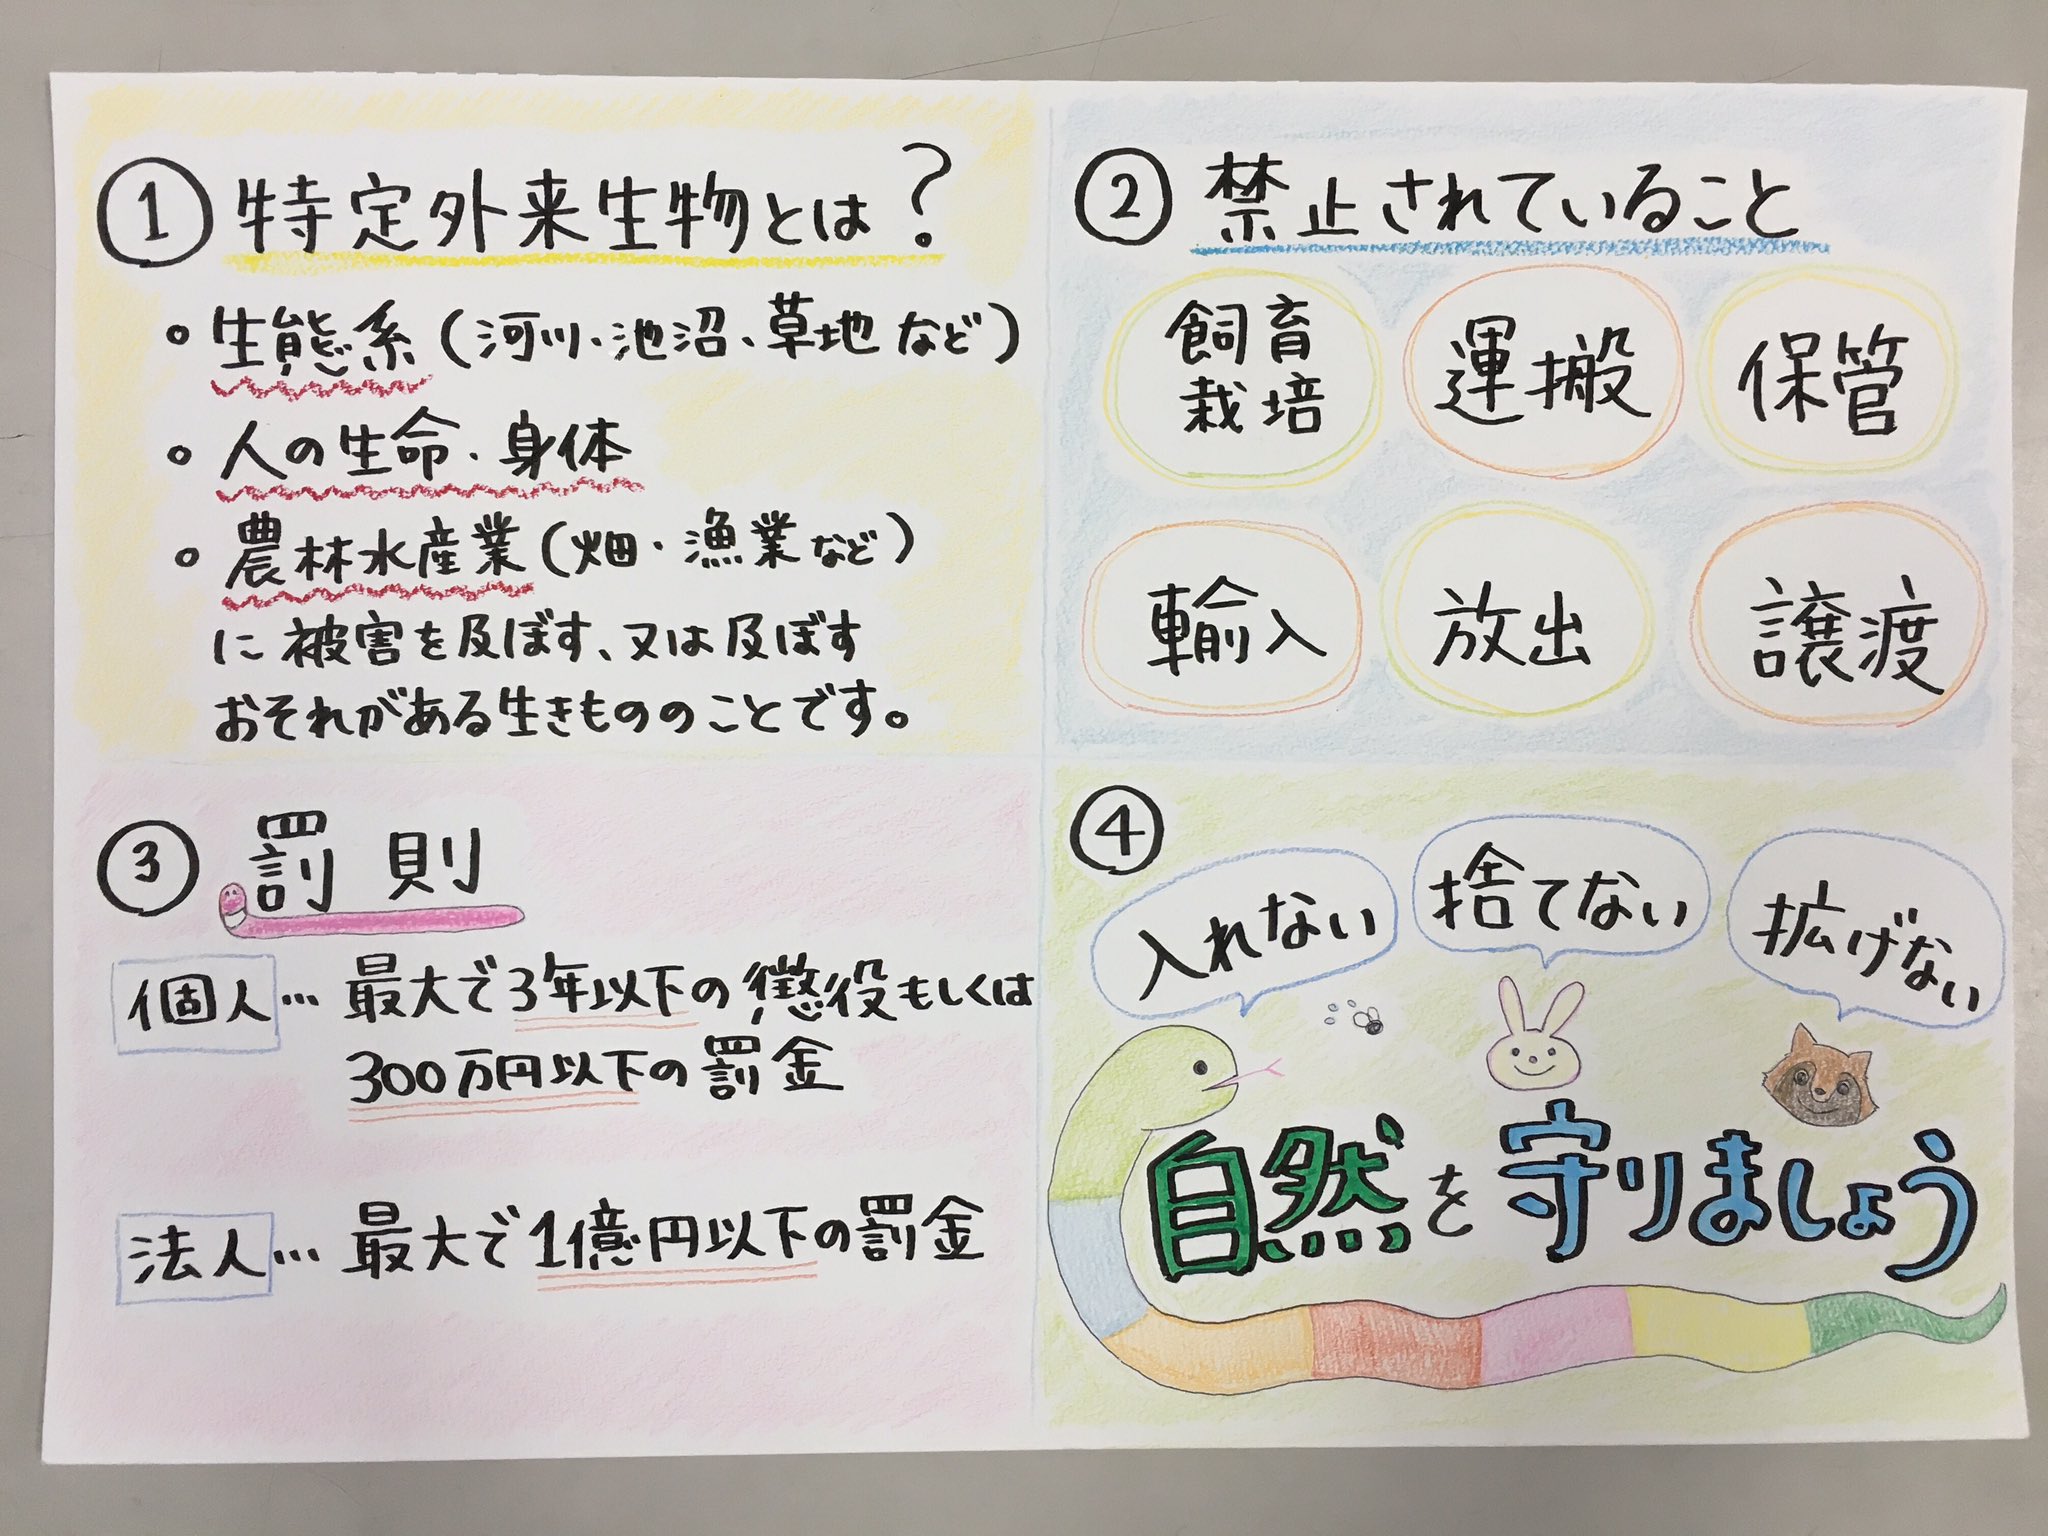 ① 特定外来生物とは?
。生態系(河川、池沼、草地など)
。人の生命・身体
。農林水産業(畑・漁業など)
に被害を及ぼす、又は及ぼす
おそれがある生きもののことです。
② 禁止されていること
飼育
栽培
運搬
保管
輸入
放出
譲渡
③ 罰則
個人…最大で3年以下の懲役もしくは
300万円以下の罰金
法人…最大で1億円以下の罰金
④
入れない
捨てない
拡げない
自然を守りましょう